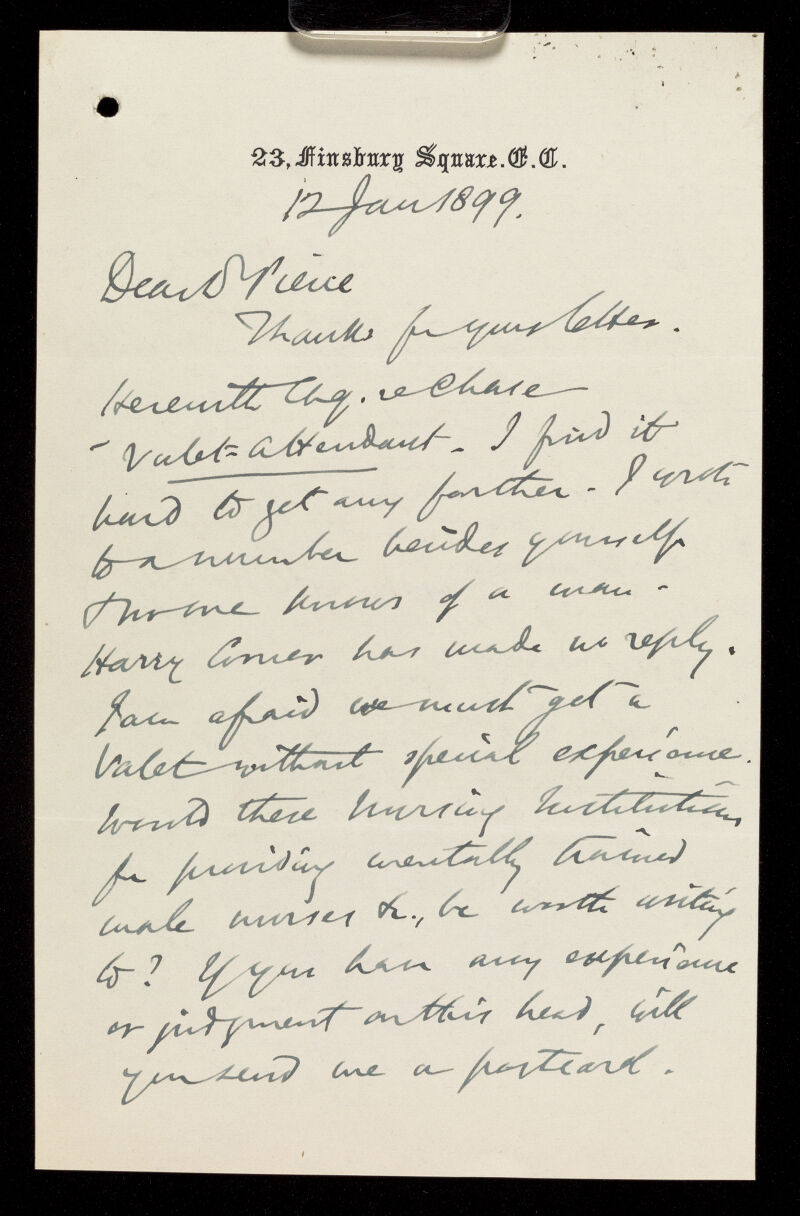 23, Finsbury Square. E. C.
12 Jan 1899.
Dear Dr Pierce
Thanks for your letter.
Herewith Chq. re Chase
- Valet=attendant - I find it
hard to get any further - I wrote
to a number besides yourself
& no one knows of a man -
Harry Corner has made no reply.
I am afraid we must get a
Valet without special experience.
Would these Nursing Institutions
for providing mentally trained
male nurses &c., be worth writing
to? If you have any experience
or judgment on this head, will
you send me a postcard.